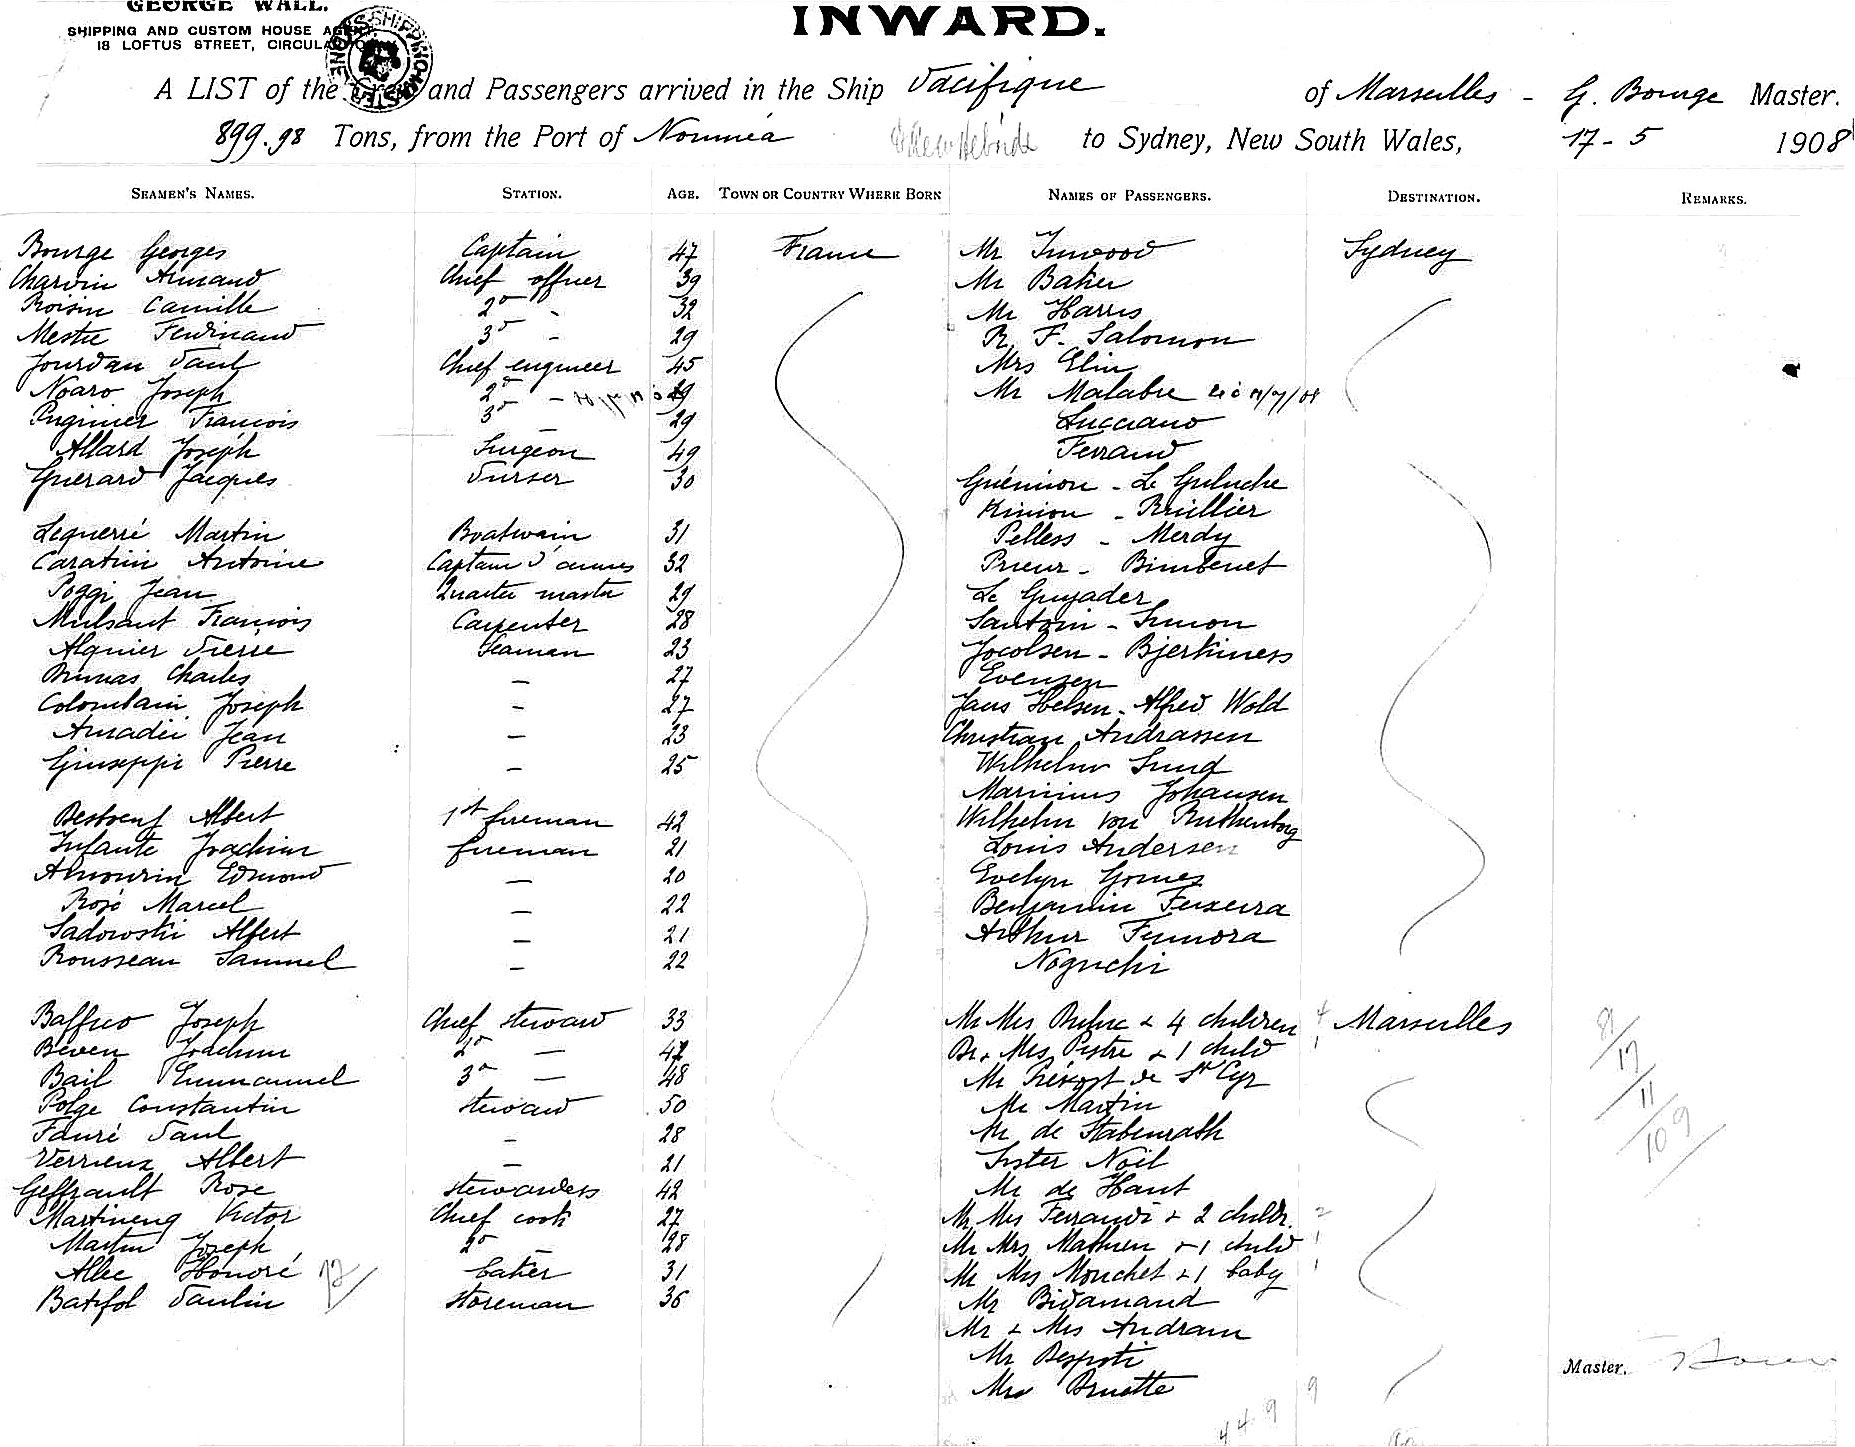 GEORGE WALL.
SHIPPING AND CUSTOM HOUSE
18 LOFTUS STREET, CIRCULAR
INWARD.
A LIST of the Crew and Passengers arrived in the Ship Pacifique of Marseilles - G. Bourge Master.
899.98 Tons, from the Port of Nouméa & New Hebrides to Sydney, New South Wales, 17-5 1908
SEAMEN'S NAMES. STATION. AGE. TOWN OR COUNTRY WHERE BORN NAMES OF PASSENGERS. DESTINATION. REMARKS.
Bourge Georges Captain 47 France Mr Inwood Sydney
Charvin Armand Chief officer 39 Mr Baker
Roisin Camille 2d - 32 Mr Harris
Mestre Ferdinand 3d - 29 R. F. Salomon
Jourdan Paul Chief engineer 45 Mrs Elin
Noaro Joseph 2d - Mr Malabre
François 3d - 29 Lucciano
Allard Joseph Surgeon 49 Ferrand
Guerard Jacques Purser 30 Guénion - Le Guluche
Kinion - Brullier
Lequerré Martin Boatwain 31 Pelless - Merdy
Caratini Antoine Captain d'armes 32 Prieur - Bimbenet
Poggi Jean Quarter master 29 Le Guyader
Mulsant François Carpenter 28 Santoni - Simon
Alquier Pierre Seaman 23 Jocolsen - Bjerkiness
Charles - 27 Evensen
Colombain Joseph - 27 Jans Helsen - Alfred Wold
Amadéi Jean - 23 Christian Andrassen
Giuseppi Pierre - 25 Wilhelm Lund
Marinius Johansen
Albert 1st fireman 42 Wilhelm von Ruthenborg
Infante Joachim fireman 21 Louis Andersen
Amourin Edmond - 20 Evelyn Gomes
Rosé Marcel - 22 Benjamin Teixeira
Sadowski Albert - 21 Arthur
Rousseau Samuel - 22 Noguchi
Joseph Chief steward 33 Mr Mrs & 4 children 4 Marseilles
Beven Joachim 2d - 42 Dr & Mrs Pestre & 1 child 1
Bail Emmanuel 3d - 48 Mr Prévost de St Cyr
Polge Constantin steward 50 Mr Martin
Fauré Paul - 28 Mr de Stabenrath
Verrieux Albert - 21 Sister Noël
Geffrault Rose stewardess 42 Mr de Haut
Martineng Victor Chief cook 27 Mr Mrs Ferrandi & 2 childr. 2
Martin Joseph 2d - 28 Mr Mrs Mathieu & 1 child 1
Allec Honoré baker 31 Mr Mrs Mouchet & 1 baby 1
Batifol Paulin storeman 36 Mr Bidamand
Mr & Mrs Andram
Mr Despoti
Master.
Mrs Brnette 9
44 9